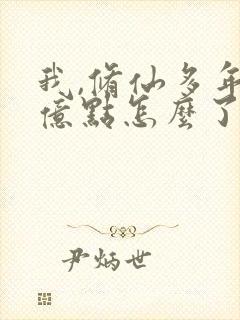 我,脩仙多年強
億點怎麼了
尹炳世